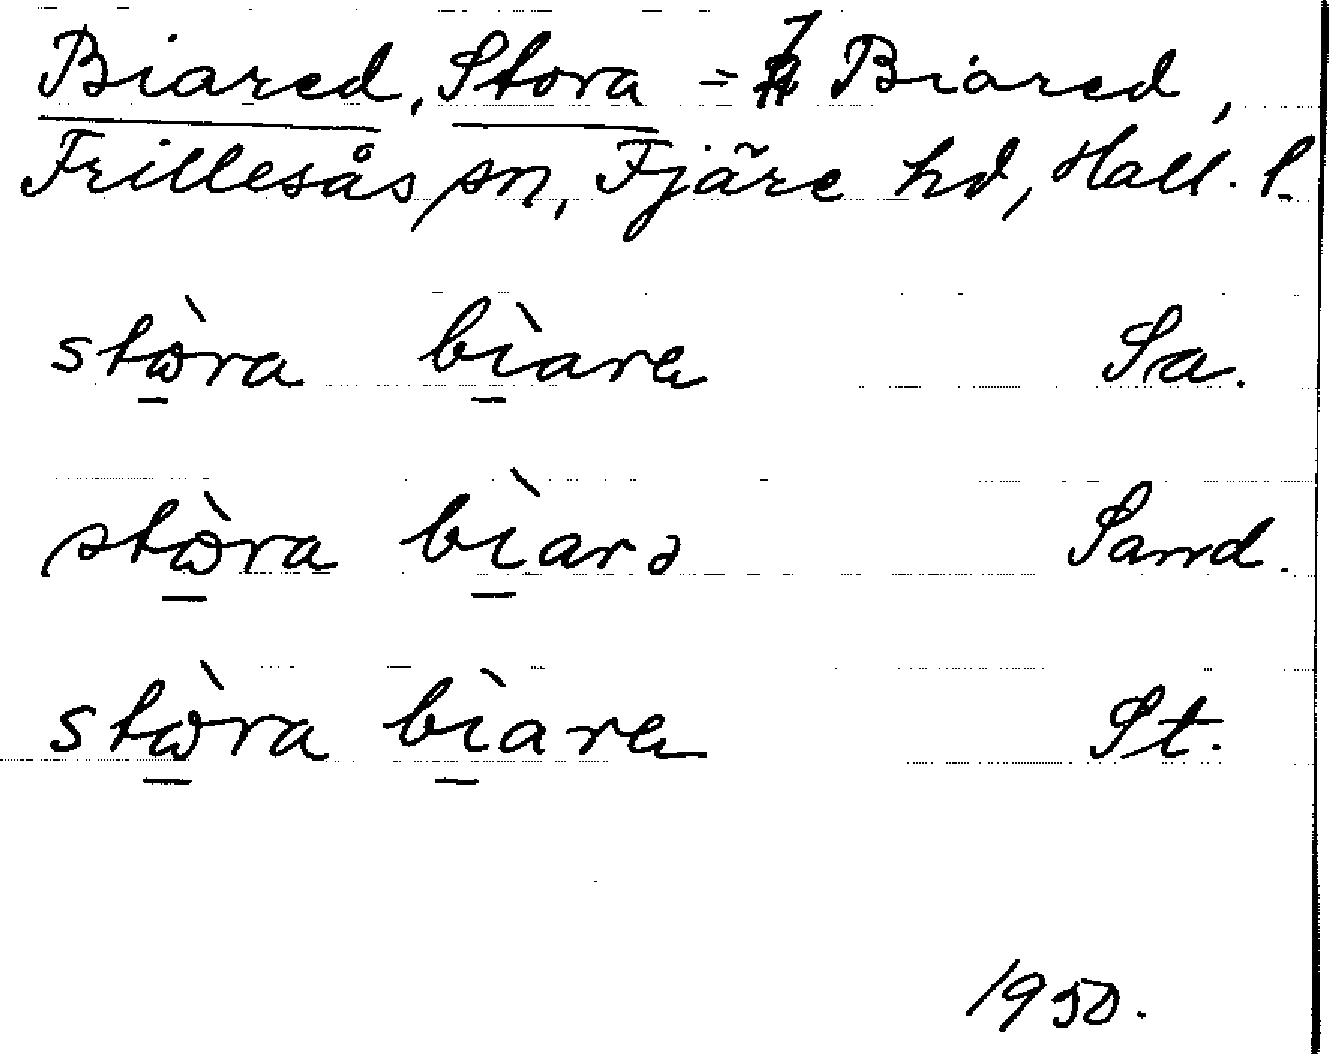 Biared, Stora = Biared,
Frillesås sn, Fjäre hd, Hall. l.
stὼra bìare Sa.
stὼra bìarə Sand.
stὼra bìare St.
1950.